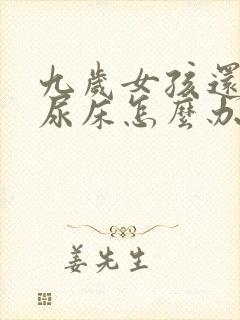 九歲女孩還
尿床怎麼办
姜先生